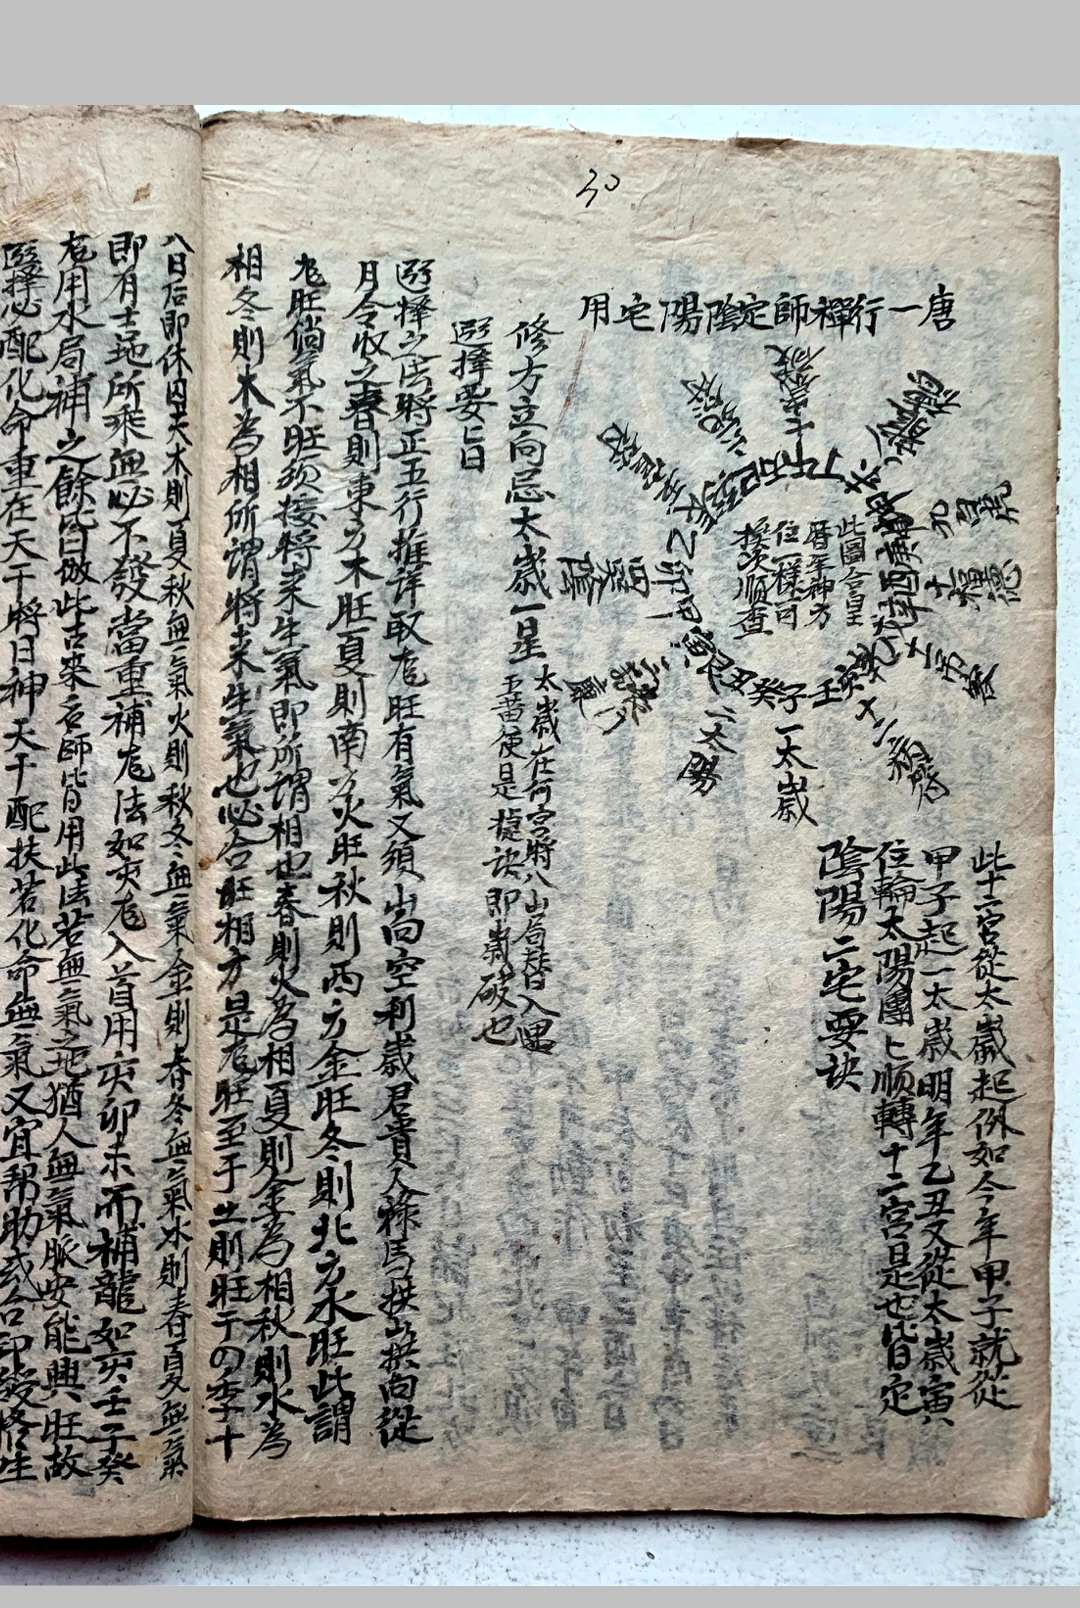 30
唐一行禪師定陰陽宅用
此圖合皇
曆年神方
位一樣可
挨次順查
壬子癸丑艮寅甲卯乙
一太歲
二太陽
三喪門
四太陰
五官符
六死符
七歲破
八龍德
九白虎
十福德
十一吊客
十二病符
此十二宮從太歲起例如今年甲子就從
甲子起一太歲明年乙丑又從太歲寅八
位輪太陽團上順轉十二宮是也皆日定
陰陽二宅要訣
修方立向忌太歲一星
太歲在何宮將八山局替日入遇
五黃便是捷訣即歲破也
選擇要旨
選擇之法將正五行推詳取尨旺有氣又須山嵩空利歲君貴人祿馬拱山拱向從
月令收之春則東方木旺夏則南方火旺秋則西方金旺冬則北方水旺此謂
尨旺倘氣不旺須接將來生氣即所謂相也春則火為相夏則金為相秋則水為
相冬則木為相所謂將來生氣也必合旺相方是尨旺至于土則旺于四季十
八日后即休囚夫木則夏秋無氣火則秋冬無氣金則春冬無氣水則春夏無氣
即有土地所乘無必不發當重補尨法如亥尨入首用亥卯未而補龍如亥壬子癸
尨用水局補之餘皆倣此古來名師皆用此法若無氣之地猶人無氣脈安能興旺故
選擇必配化命重在天干將日神天干配扶若化命無氣又宜幫助或合印綬修生